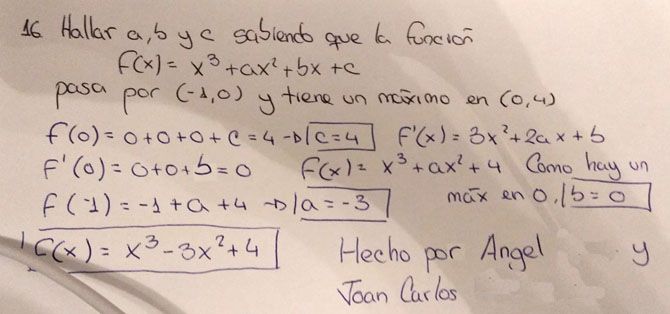 16 Hallar a, b y c sabiendo que la función
f(x) = x³ + ax² + bx + c
pasa por (-1,0) y tiene un máximo en (0,4)
f(0) = 0+0+0+c = 4 → c=4 f'(x) = 3x² + 2ax + b
f'(0) = 0+0+b = 0 f(x) = x³ + ax² + 4 Como hay un
f(-1) = -1 + a + 4 → a = -3 máx en 0, b = 0
f(x) = x³ - 3x² + 4 Hecho por Angel y
Joan Carlos